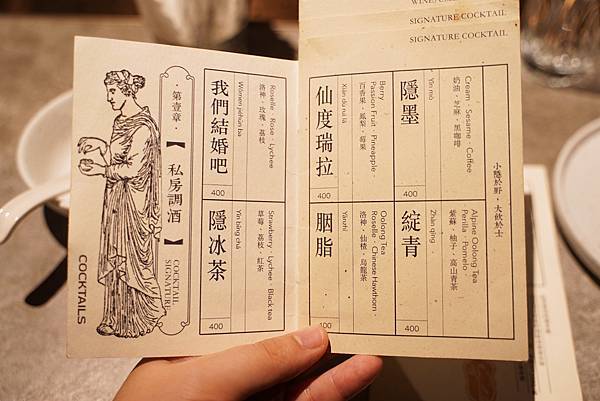 WINE/
SIGNATURE COCKTAIL
SIGNATURE COCKTAIL
小隱於野，大飲於士
隱墨
Yǐn mò
Cream · Sesame · Coffee
奶油、芝麻、黑咖啡
400
綻青
Zhàn qīng
Alpine Oolong Tea
Perilla · Pomelo ·
紫蘇、柚子、高山青茶
400
仙度瑞拉
Xiān dù ruì lā
Berry
Passion Fruit · Pineapple ·
百香果、鳳梨、莓果
400
胭脂
Yānzhī
Oolong Tea
Roselle · Chinese Hawthorn ·
洛神、仙楂、烏龍茶
400
我們結婚吧
Wǒmen jiéhūn ba
Roselle · Rose · Lychee
洛神、玫瑰、荔枝
400
隱冰茶
Yǐn bīng chá
Strawberry · Lychee · Black tea
草莓、荔枝、紅茶
400
·第壹章·
【私房調酒】
COCKTAIL
SIGNATURE
COCKTAILS